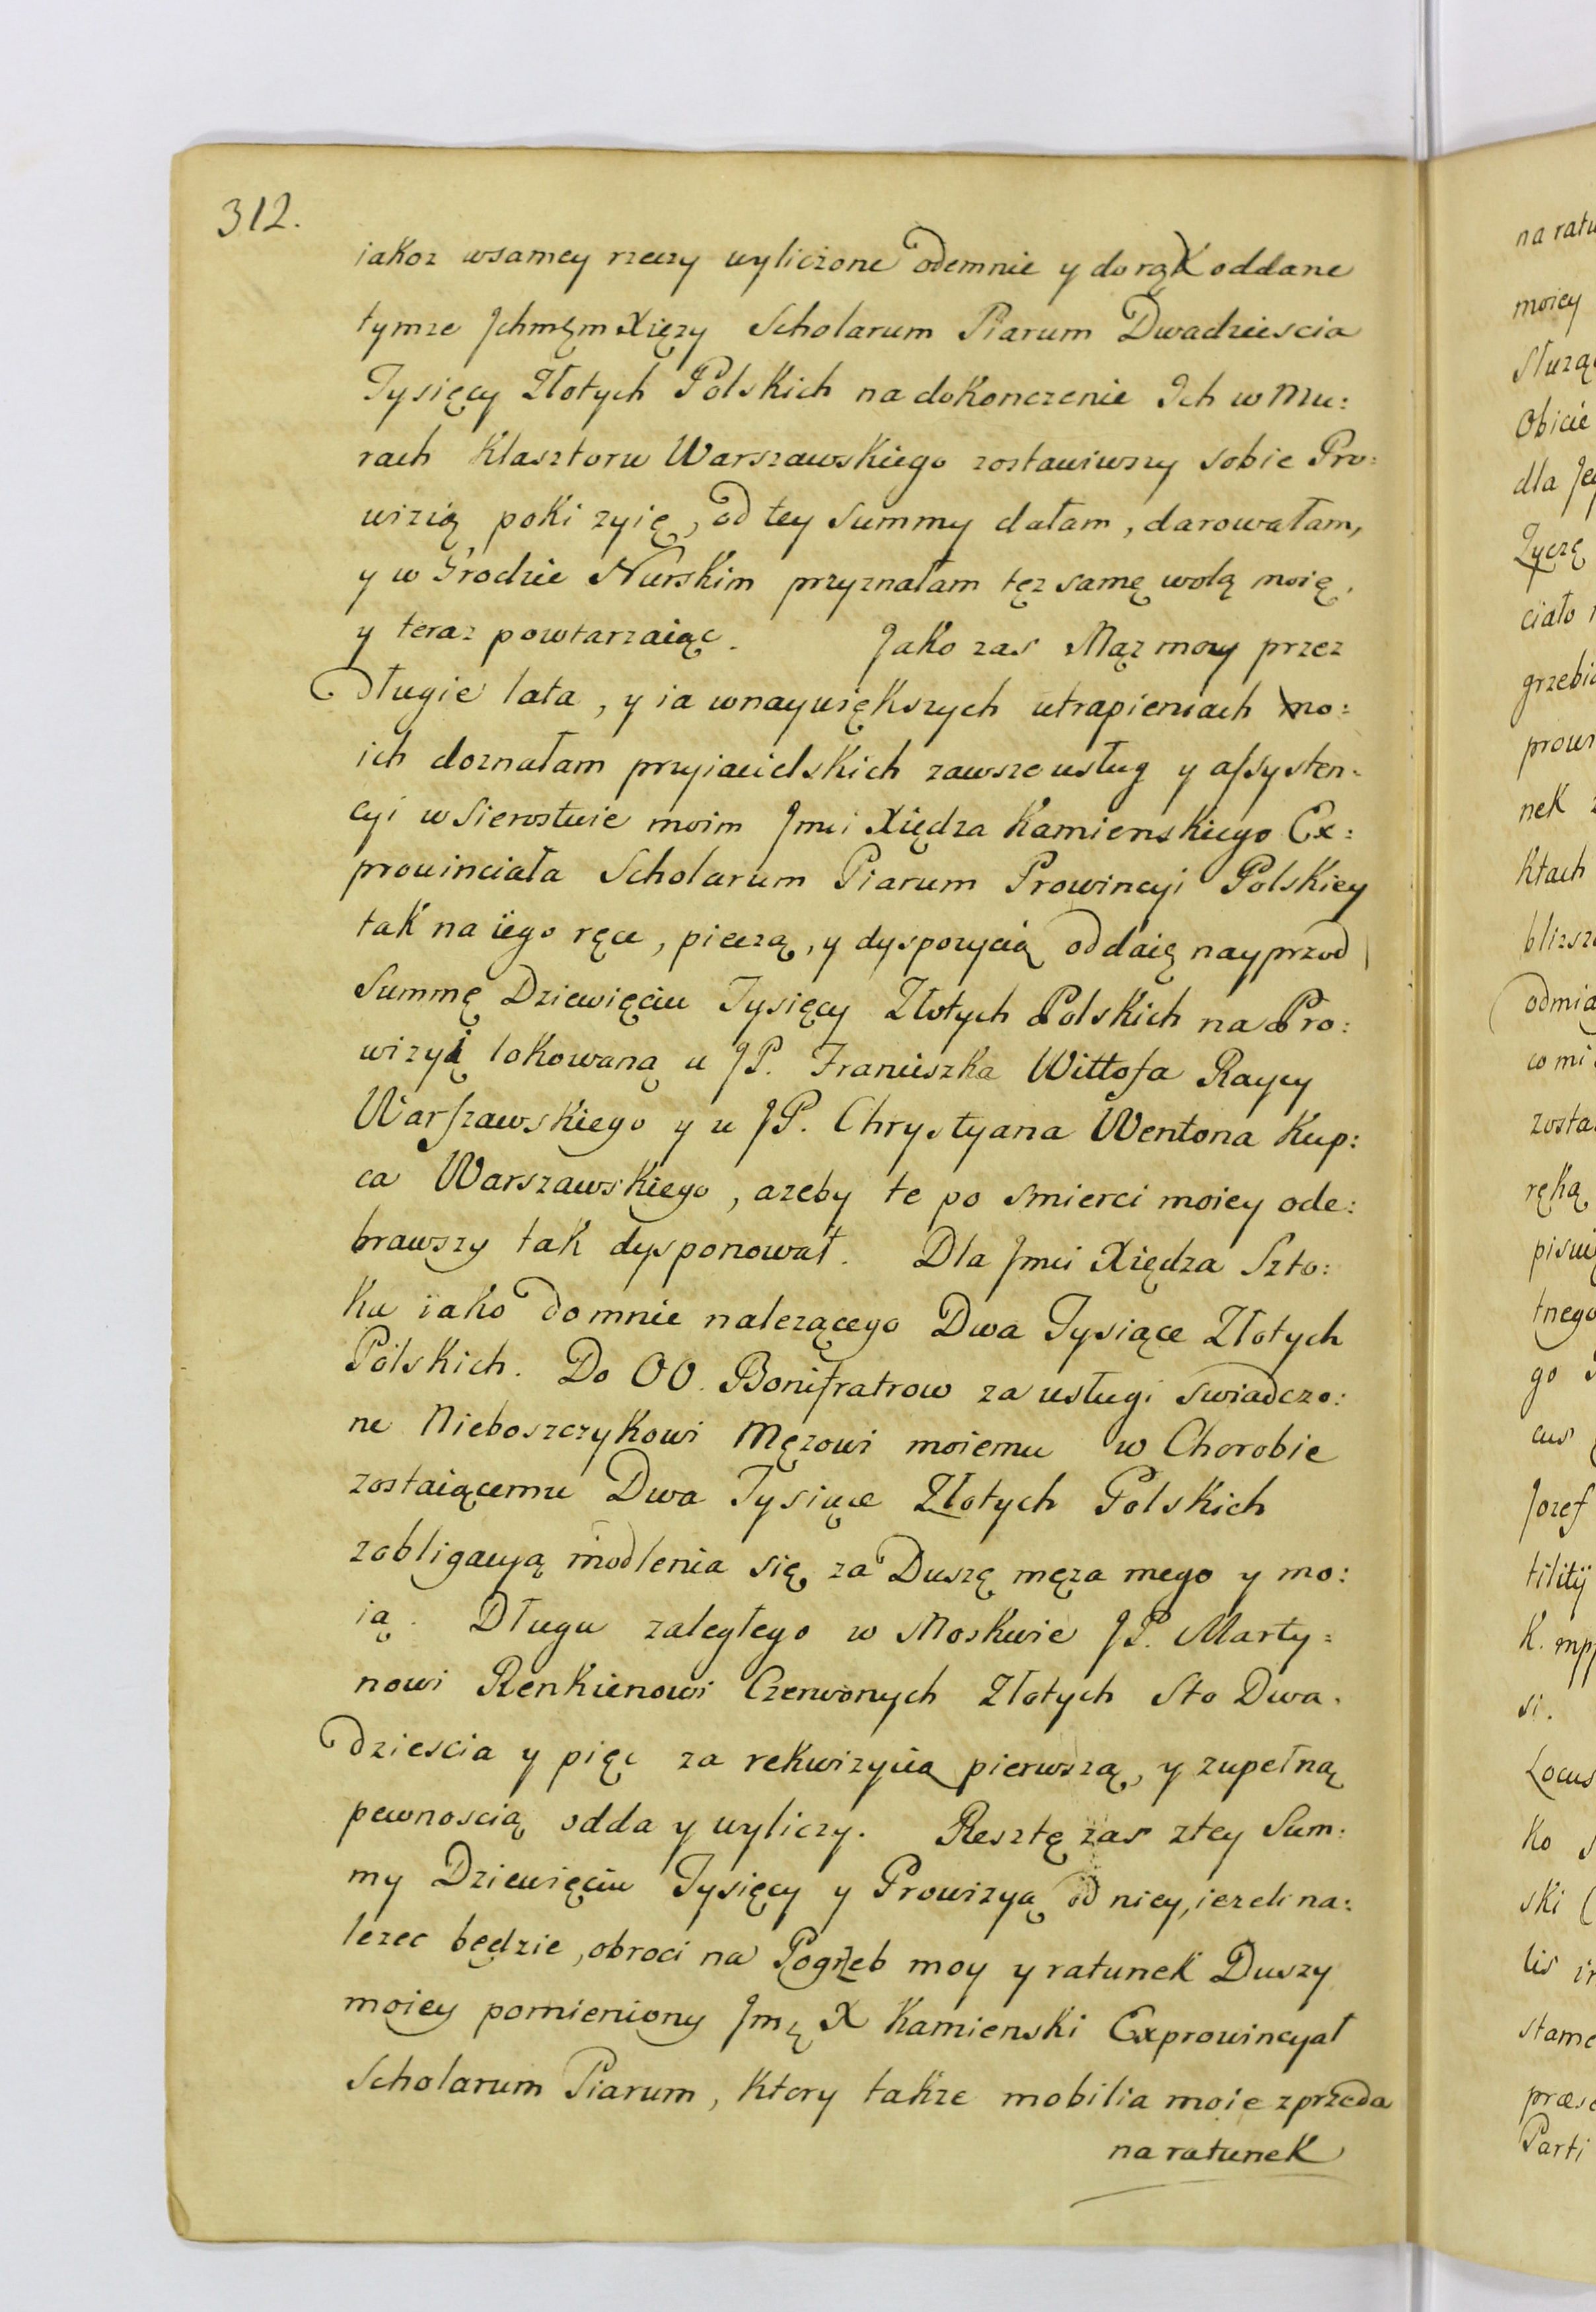 312.
iakoz wsamey rzeczy wyliczone odemnie y do rąk oddane
tymze Jchmęm Xięzy Scholarum Piarum Dwadziescia
Tysięcy Złotych Polskich na dokonczenie Ich w Mu:
rach Klasztoru Warszawskiego zostawiwszy sobie Pro:
wizią poki zyię, od tey Summy dałam, darowałam,
y w Grodzie Nurskim przyznałam tęz samę wolą moię,
y teraz powtarzaiąc. Jako zas Mąz moy przez
długie lata, y ia wnaywiększych utrapieniach mo:
ich doznałam przyiacielskich zawsze usług y assysten:
cyi w Sierostwie moim Jmci Xiędza Kamienskiego Ex:
prowinciała Scholarum Piarum Prowincyi Polskiey
tak na iego ręce, pieczą, y dyspozycią oddaię nayprzod
Summę Dziewięciu Tysięcy Złotych Polskich na Pro:
wizyą lokowaną u JP. Franciszka Wittofa Raycy
Warszawskiego y u JP. Chrystyana Wentona Kup:
ca Warszawskiego, azeby te po smierci moiey ode:
brawszy tak dysponował. Dla Jmci Xiędza Szto:
ku iako do mnie nalezącego Dwa Tysiące Złotych
Polskich. Do OO. Bonifratrow za usługi swiadczo:
ne Nieboszczykowi Męzowi moiemu w Chorobie
zostaiącemu Dwa Tysiące Złotych Polskich
zobligacyą modlenia się za Duszę męza mego y mo:
ią. Długu zaległego w Moskwie JP. Marty:
nowi Renkienowi Czerwonych Złotych Sto Dwa:
dziescia y pięc za rekwizycią pierwszą, y zupełną
pewnoscią odda y wyliczy. Resztę zas ztey Sum:
my Dziewięciu Tysięcy y Prowizyą od niey, iezeli na:
lezec będzie, obroci na Pogrzeb moy y ratunek Duszy
moiey pomieniony Jmę X Kamienski Exprowincyał
Scholarum Piarum, ktory takze mobilia moie zprzeda
na ratunek
na ratu
moiey
Słuzą
Obicie
dla Je
Zyczę
ciało
grzebi
prow
nek
ktach
blizs
odmia
co mi
zosta
ręką
pisw
tnego
go
cus
Jozef
tilitÿ
K. mpp
si.
Locus
ko
ski
lis
stame
præs
Parti